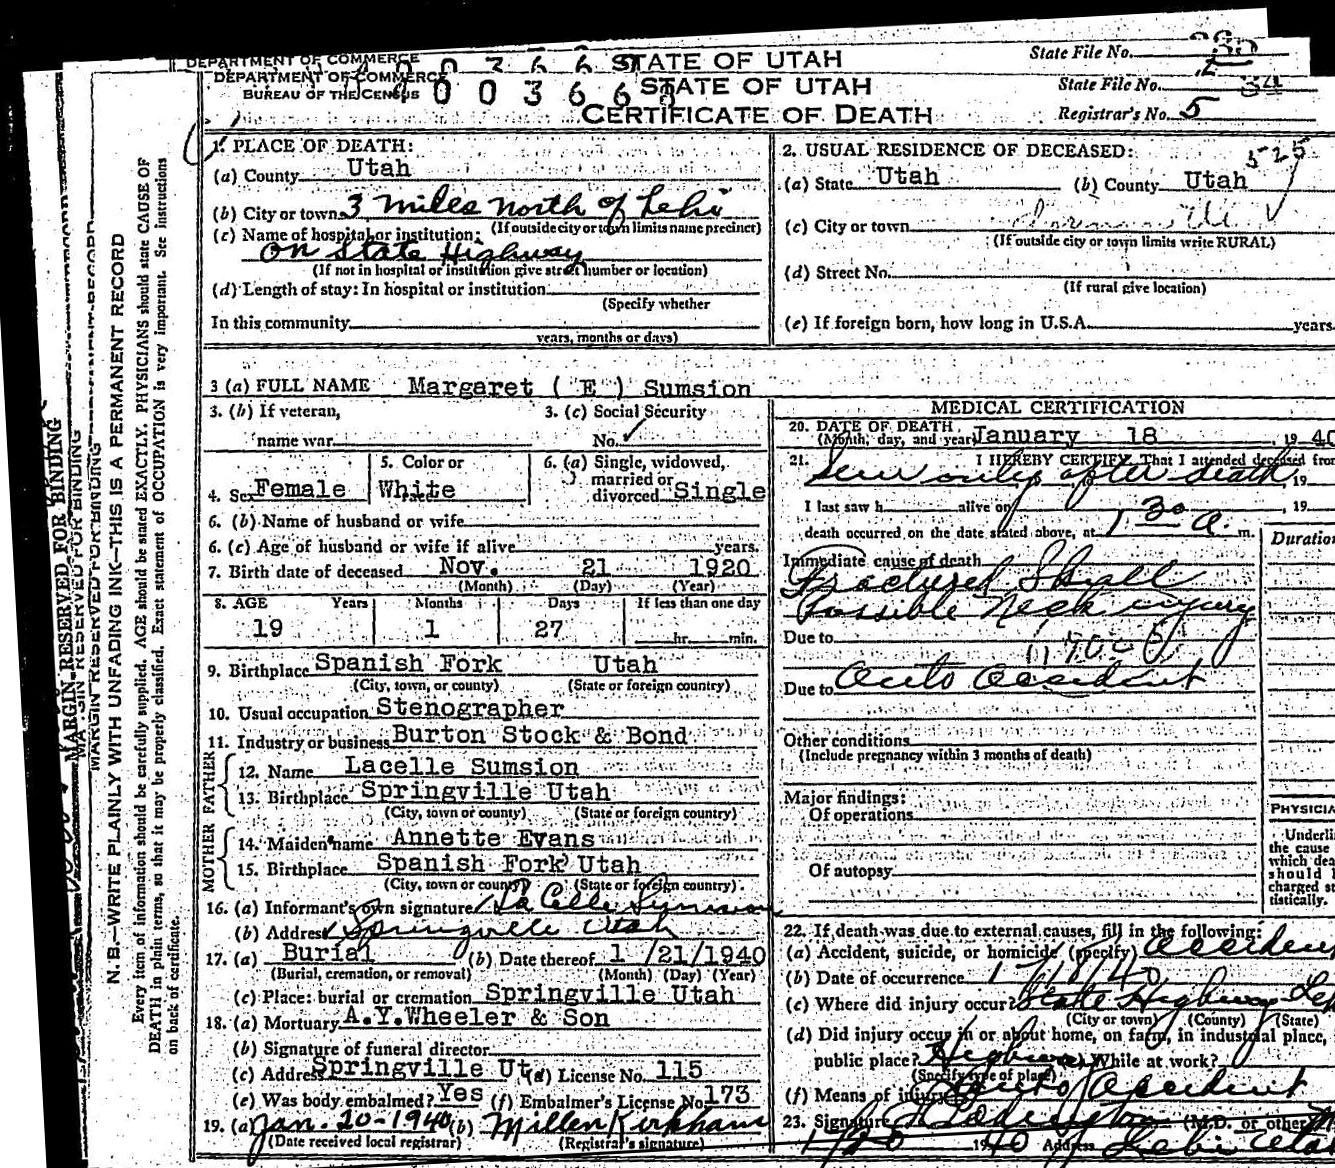 DEPARTMENT OF COMMERCE STATE OF UTAH State File No.
DEPARTMENT OF COMMERCE STATE OF UTAH State File No. 34
BUREAU OF THE CENSUS 0 0 3 6 6
CERTIFICATE OF DEATH Registrar's No. 5
1. PLACE OF DEATH:
(a) County Utah
(b) City or town 3 miles North of Lehi
(If outside city or town limits name precinct)
(c) Name of hospital or institution:
On State Highway
(If not in hospital or institution give street number or location)
(d) Length of stay: In hospital or institution
(Specify whether
In this community
years, months or days)
2. USUAL RESIDENCE OF DECEASED: 525
(a) State Utah (b) County Utah
(c) City or town
(If outside city or town limits write RURAL)
(d) Street No.
(If rural give location)
(e) If foreign born, how long in U.S.A. years.
3 (a) FULL NAME Margaret ( E ) Sumsion
3. (b) If veteran, 3. (c) Social Security
name war No. ✓
4. Sex Female 5. Color or White 6. (a) Single, widowed, married or divorced Single
6. (b) Name of husband or wife
6. (c) Age of husband or wife if alive years.
7. Birth date of deceased Nov. 21 1920
(Month) (Day) (Year)
8. AGE Years Months Days If less than one day
19 1 27 hr. min.
9. Birthplace Spanish Fork Utah
(City, town, or county) (State or foreign country)
10. Usual occupation Stenographer
11. Industry or business Burton Stock & Bond
FATHER
12. Name Lacelle Sumsion
13. Birthplace Springville Utah
(City, town or county) (State or foreign country)
MOTHER
14. Maiden name Annette Evans
15. Birthplace Spanish Fork Utah
(City, town or county) (State or foreign country)
16. (a) Informant's own signature La Celle Sumsion
(b) Address Springville Utah
17. (a) Burial (b) Date thereof 1 /21/1940
(Burial, cremation, or removal) (Month) (Day) (Year)
(c) Place: burial or cremation Springville Utah
18. (a) Mortuary A.Y.Wheeler & Son
(b) Signature of funeral director
(c) Address Springville Ut. (d) License No. 115
(e) Was body embalmed? Yes (f) Embalmer's License No. 173
19. (a) Jan. 20-1940 (b) Millen Kirkham
(Date received local registrar) (Registrar's signature)
MEDICAL CERTIFICATION
20. DATE OF DEATH
(Month, day, and year) January 18 , 19 40
21. I HEREBY CERTIFY, That I attended deceased from
Seen only after death , 19
I last saw h alive on , 19
death occurred on the date stated above, at 1 30 a. m.
Immediate cause of death Duration
Fractured Skull
Possible Neck injury
Due to
Due to Auto accident
Other conditions
(Include pregnancy within 3 months of death)
Major findings:
Of operations
Of autopsy
PHYSICIA
Underli
the cause
which dea
should b
charged st
tistically.
22. If death was due to external causes, fill in the following:
(a) Accident, suicide, or homicide (specify) Acciden
(b) Date of occurrence 1/18/40
(c) Where did injury occur? State Highway Leh
(City or town) (County) (State)
(d) Did injury occur in or about home, on farm, in industrial place,
public place? Highway While at work?
(Specify type of place)
(f) Means of injury Auto Accident
23. Signature (M.D. or other)
1/20 19 40 Address Lehi Utah
MARGIN RESERVED FOR BINDING
MARGIN RESERVED FOR BINDING
N. B.—WRITE PLAINLY WITH UNFADING INK—THIS IS A PERMANENT RECORD
Every item of information should be carefully supplied. AGE should be stated EXACTLY. PHYSICIANS should state CAUSE OF
DEATH in plain terms, so that it may be properly classified. Exact statement of OCCUPATION is very important. See instructions
on back of certificate.